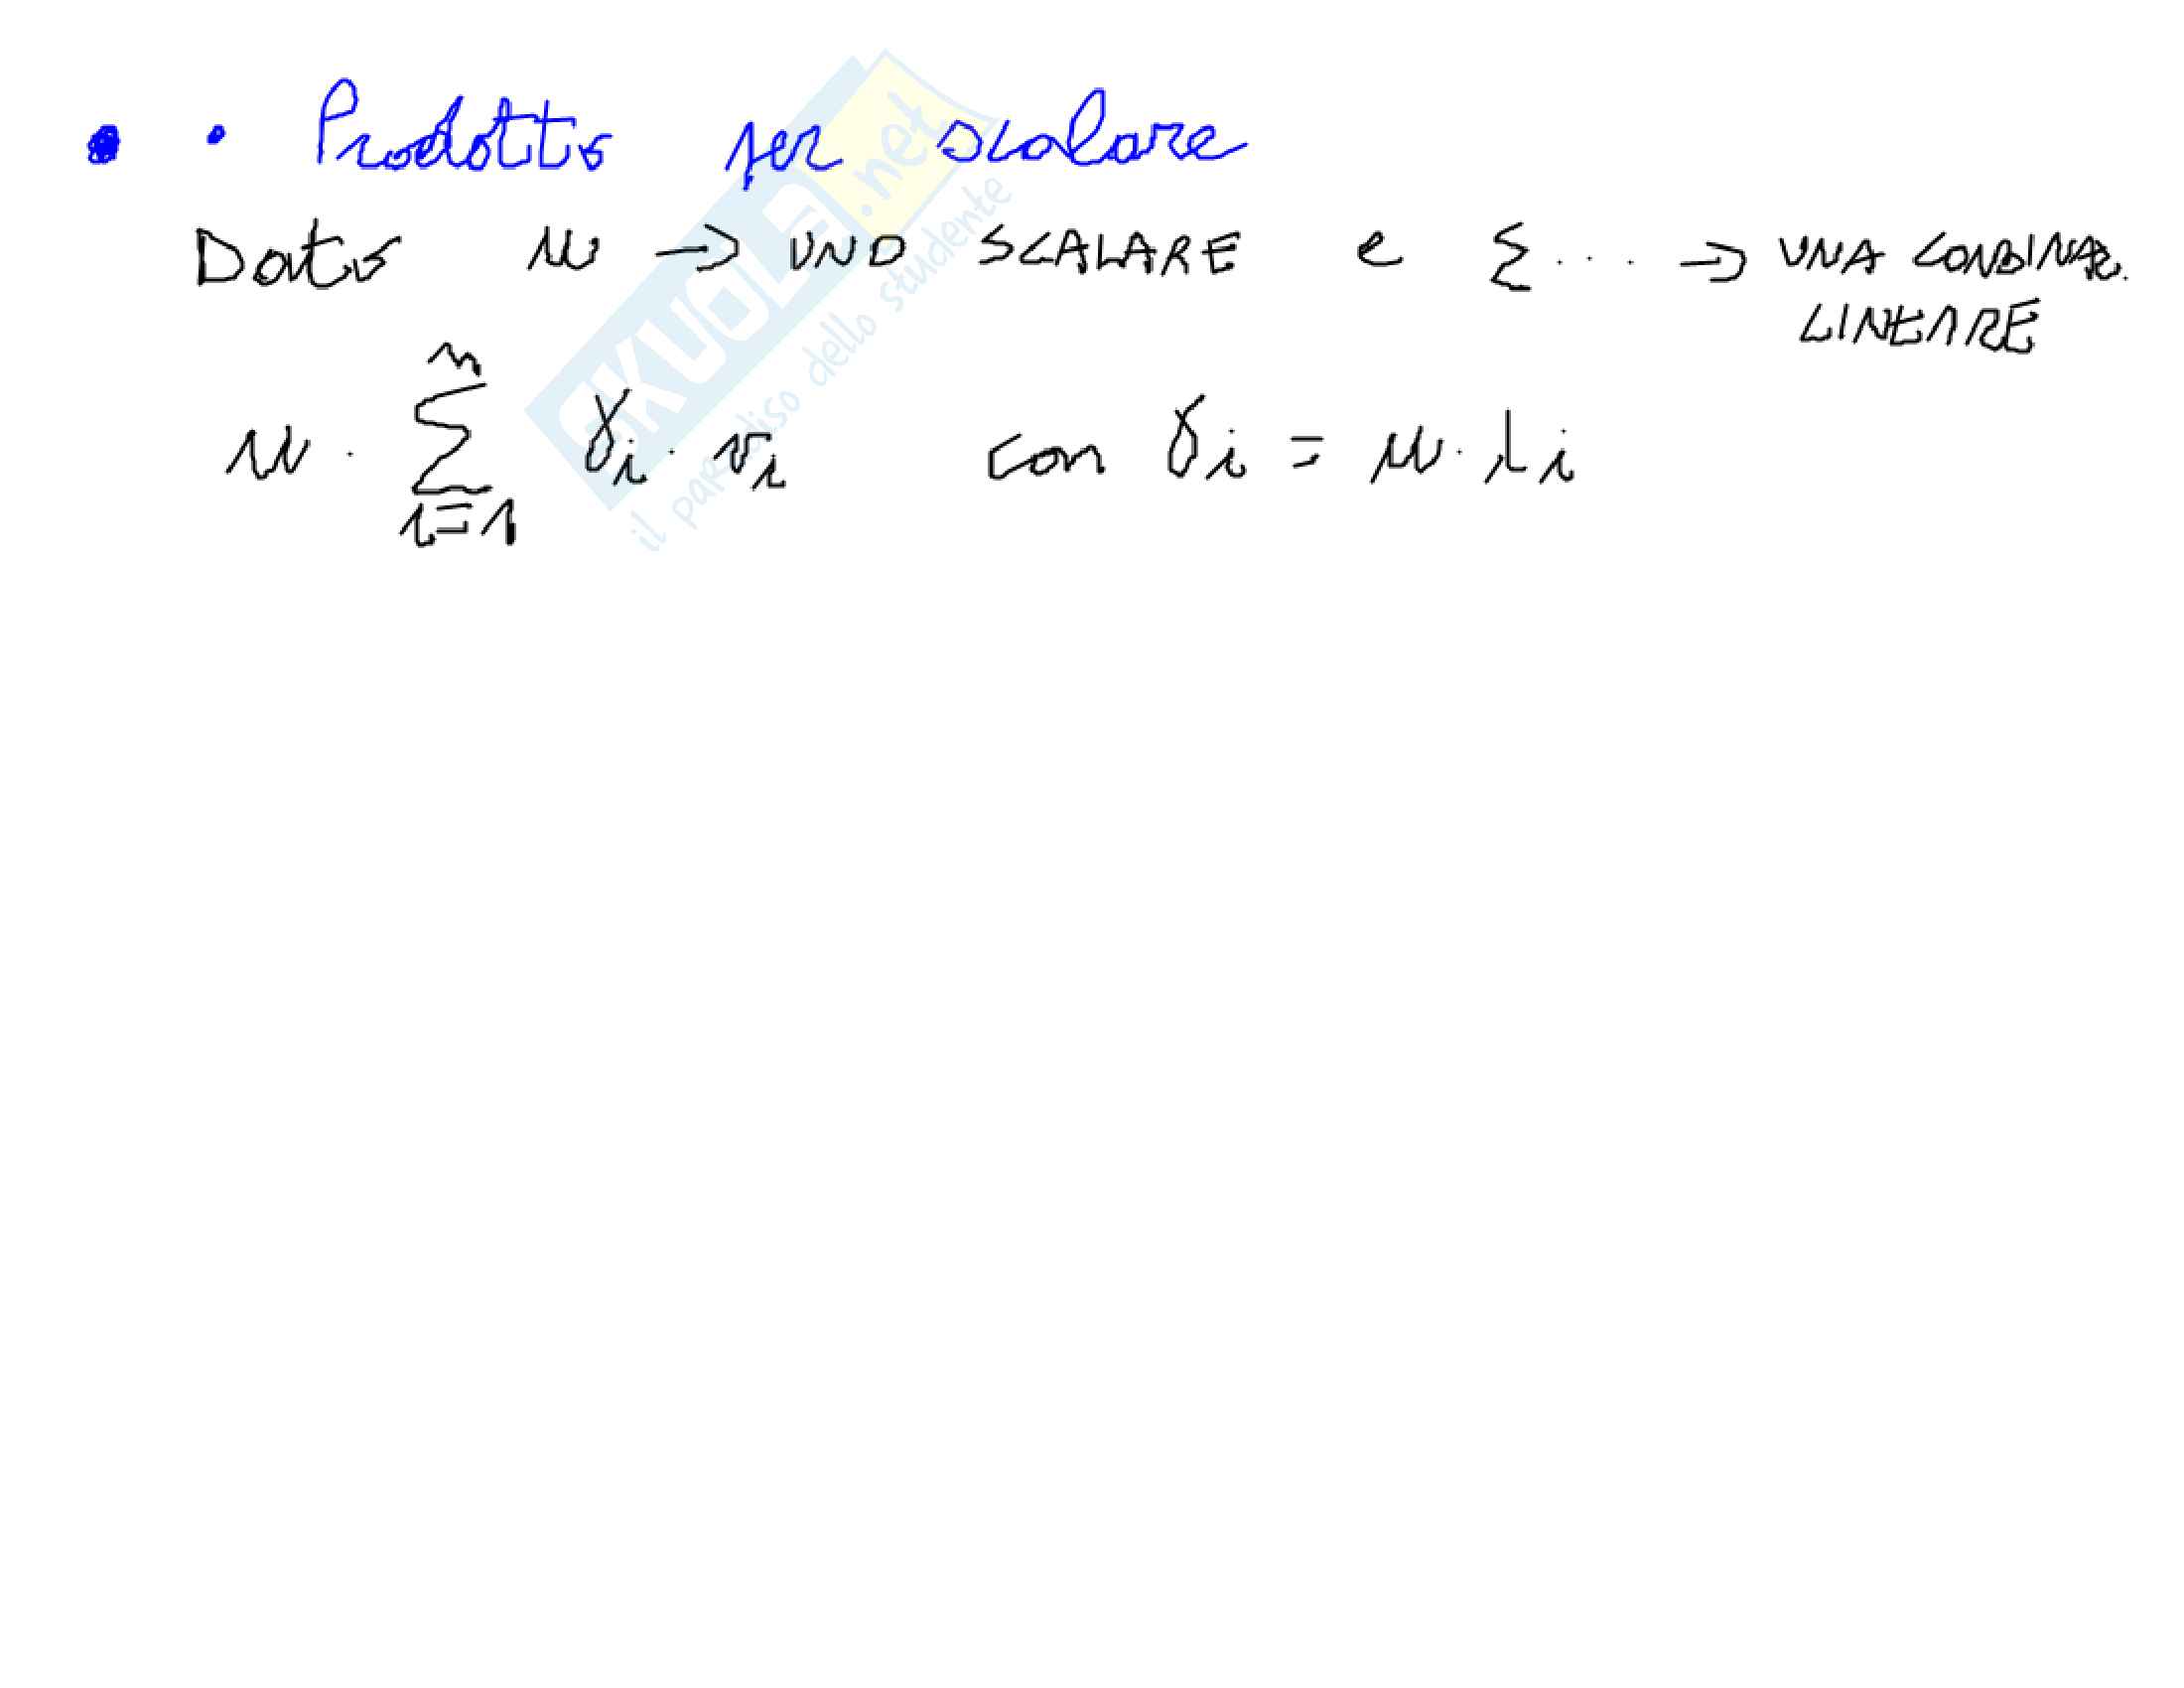 • • Prodotto per scalare
Dato μ → UNO SCALARE e Σ... → UNA COMBINAZ.
LINEARE
n
μ · Σ γi · vi con γi = μ · λi
i=1
SKUOLA.net
il paradiso dello studente